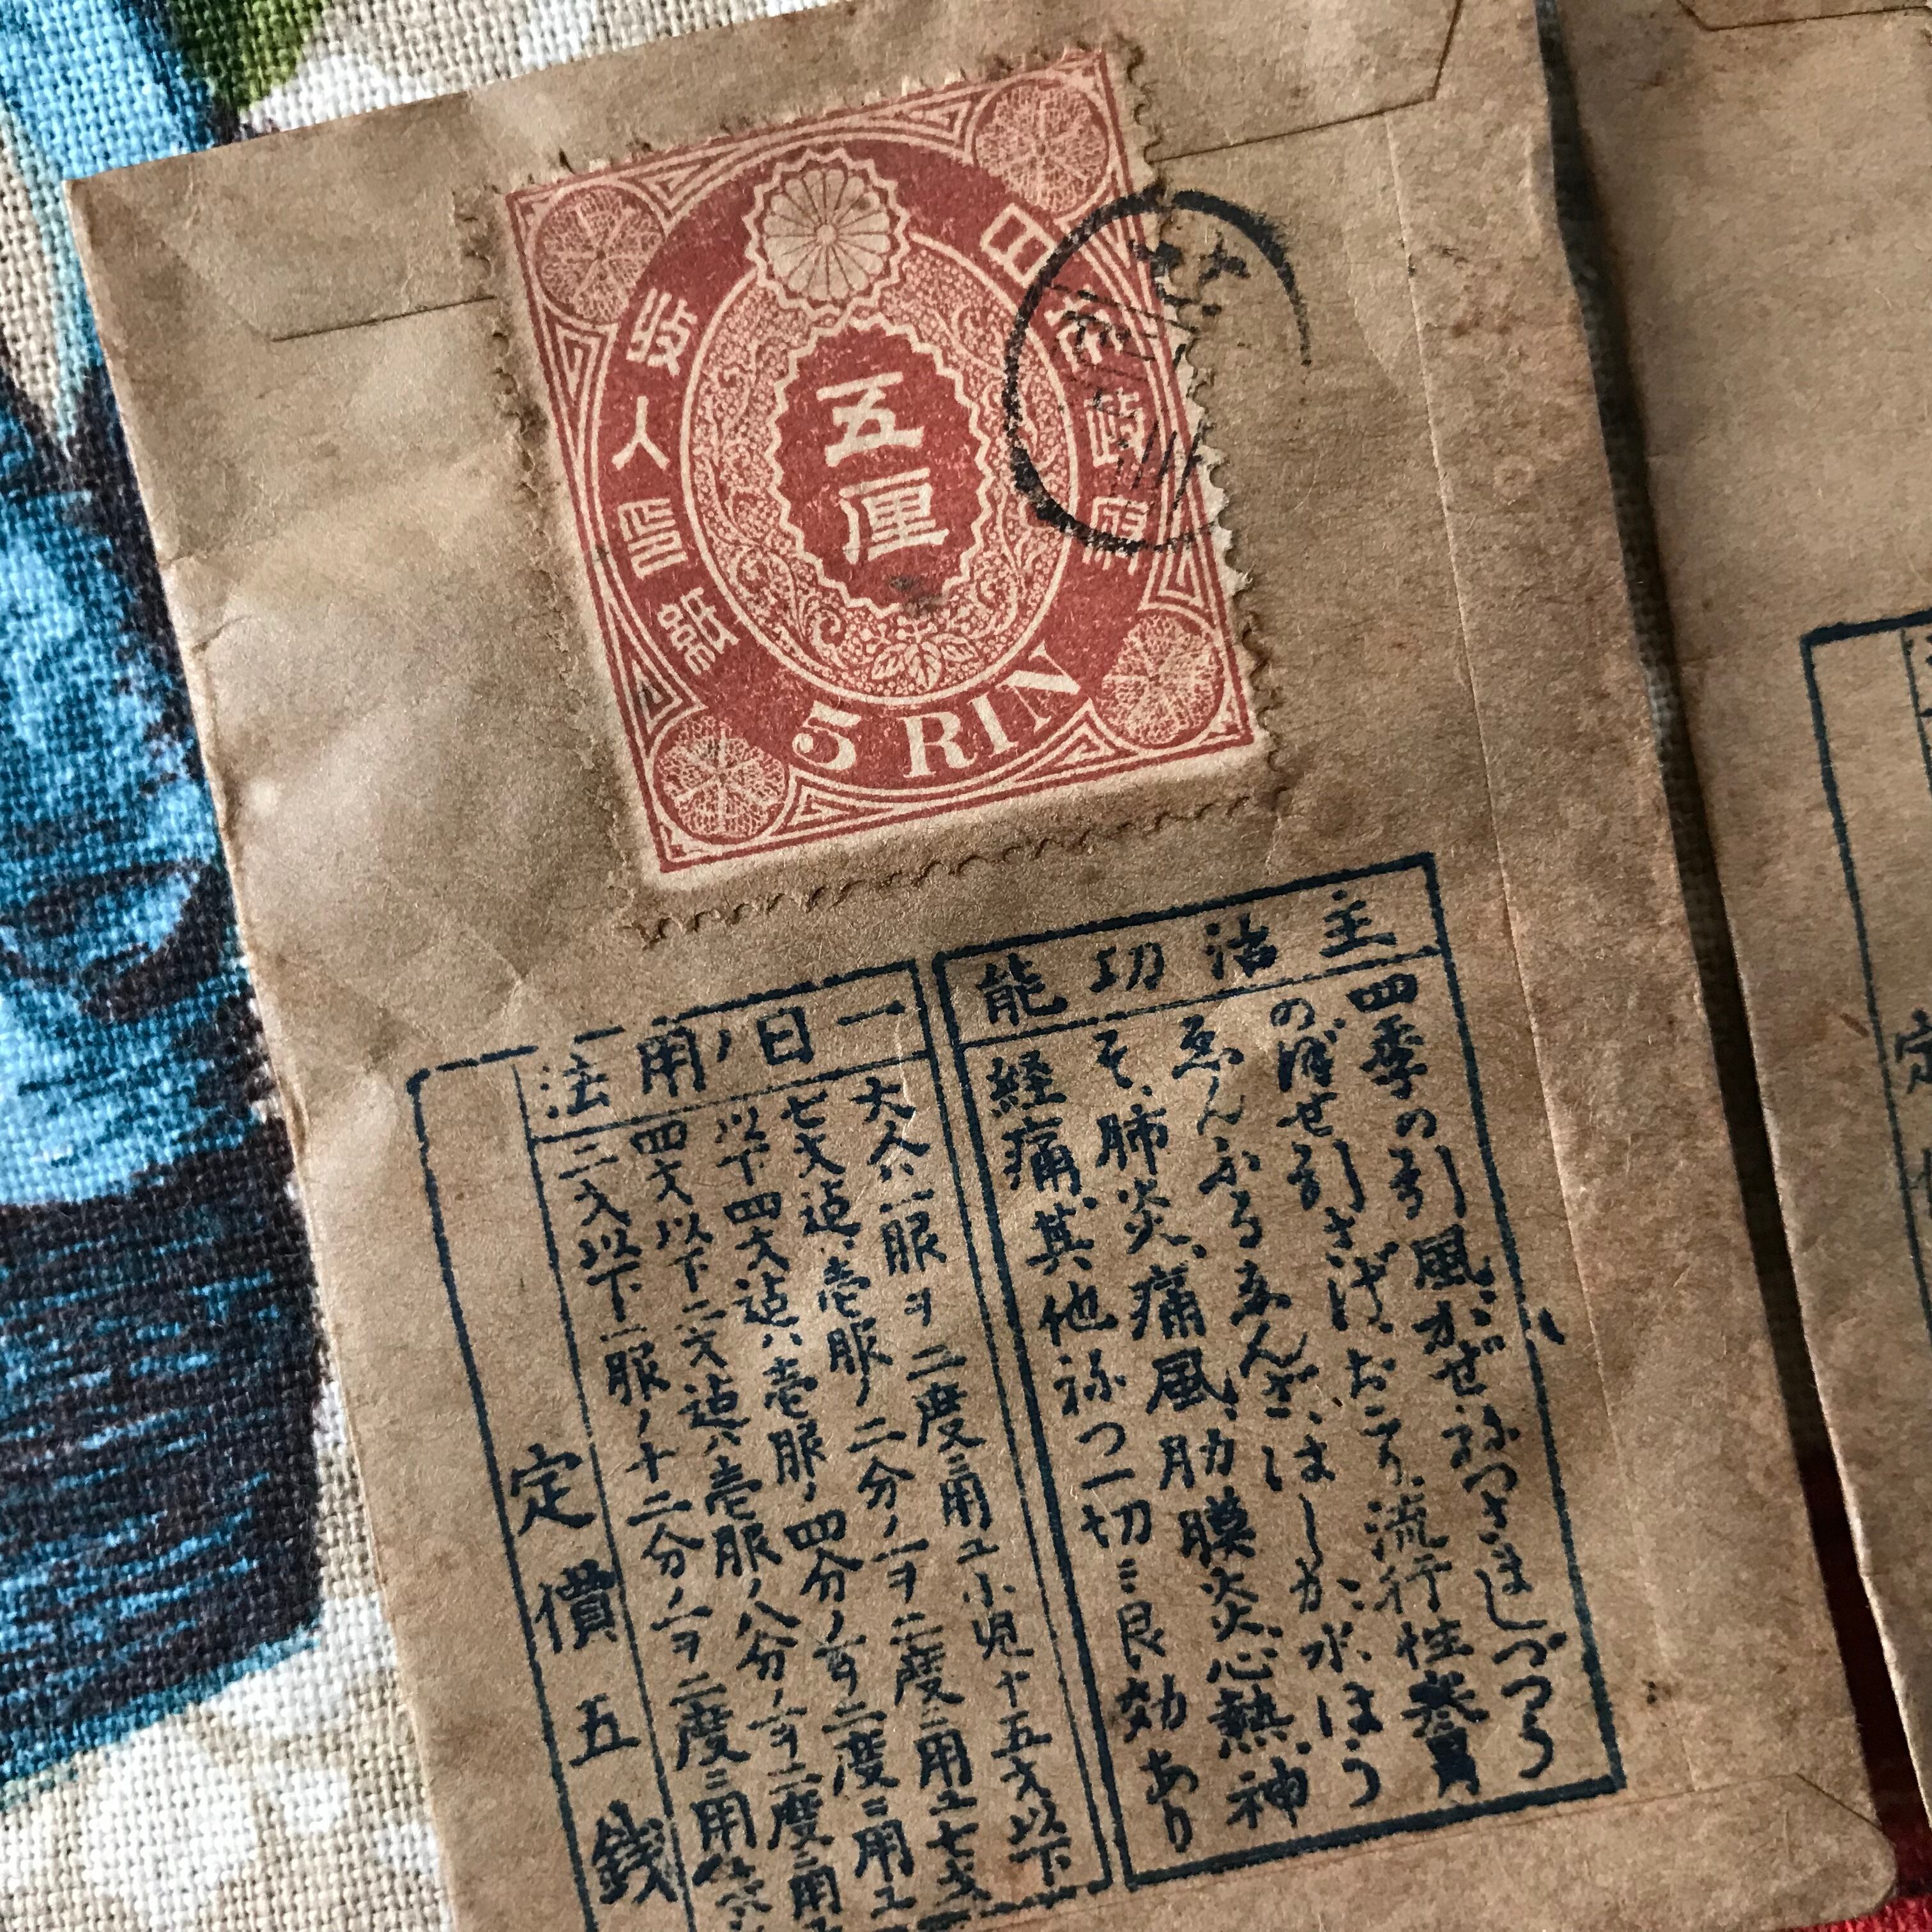 日本政府
收入印紙
五厘
5 RIN
芝
主治功能
四季の引風、かぜ、ねつさましづつう
のぼせ引さげ、おこり、流行性感冒
ゑんふるゑんざ、はしか、水ほう
そ、肺炎、痛風、肋膜炎、心熱、神
経痛、其他ねつ一切ニ良効あり
一日ノ用法
大人ハ一服ヲ二度ニ用ユ小児十五才以下
七才迠ハ壱服ノ二分ノ一ヲ二度ニ用ユ七才
以下四才迠ハ壱服ノ四分ノ一ヲ二度ニ用ユ
四才以下二才迠ハ壱服ノ八分ノ一ヲ二度ニ用
二才以下一服ノ十二分ノ一ヲ二度ニ用
定價五銭
定